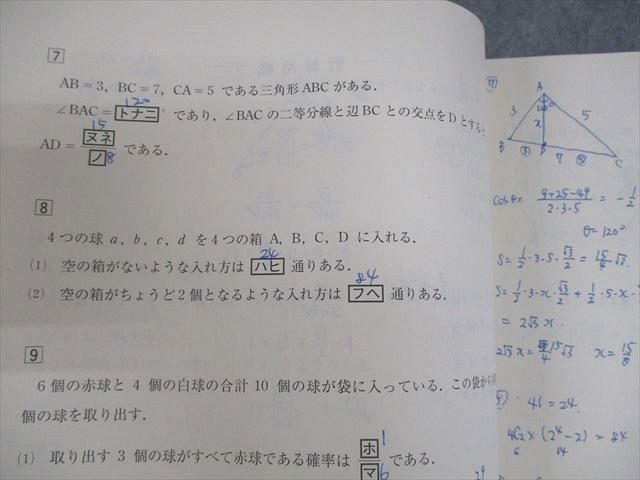 7
AB=3, BC=7, CA=5 である三角形 ABC がある.
120
∠BAC=トナニ°であり, ∠BAC の二等分線と辺 BC との交点を D とすると,
15
AD=ヌネ/ノ である.
8
8
4つの球 a, b, c, d を4つの箱 A, B, C, D に入れる.
24
(1) 空の箱がないような入れ方は ハヒ 通りある.
84
(2) 空の箱がちょうど2個となるような入れ方は フヘ 通りある.
9
6個の赤球と 4 個の白球の合計 10 個の球が袋に入っている. この袋から
個の球を取り出す.
(1) 取り出す 3 個の球がすべて赤球である確率は ホ/マ である.
1
6
⑦
A
3
5
x
B
D
C
③
7
⑤
cosθ= 9+25-49/2·3·5 = -1/2
θ=120°
S=1/2·3·5·√3/2=15/4√3.
S=1/2·3·x·√3/2+1/2·5·x·
=2√3x.
2√3x=15/4√3 x=15/8
4!=24.
4C2×(2⁴-2)=84
6
14
29